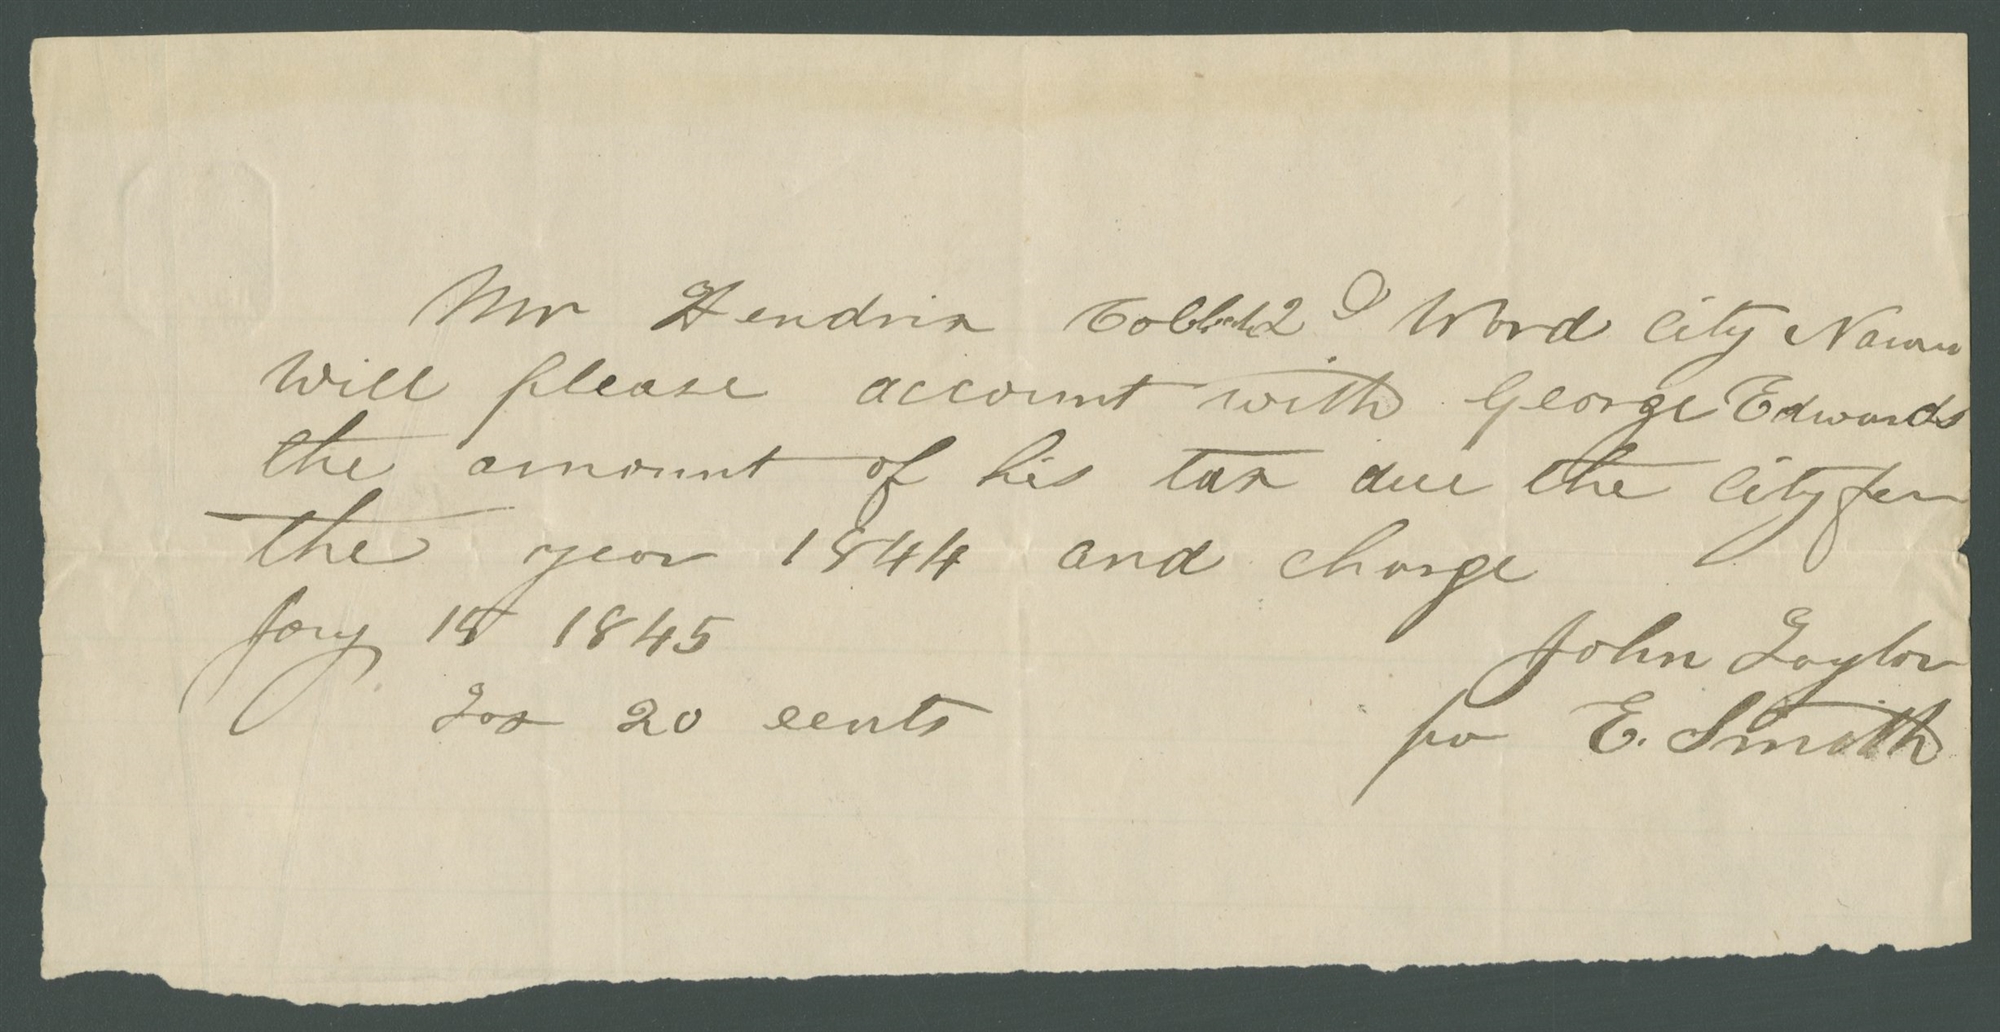 Mr Hendrix Collect 2d Word City Nauvoo
Will please account with George Edwards
the amount of his tax due the City for
the year 1844 and charge
Jany 18 1845
John Taylor
Tax 20 cents
pr E. Smith